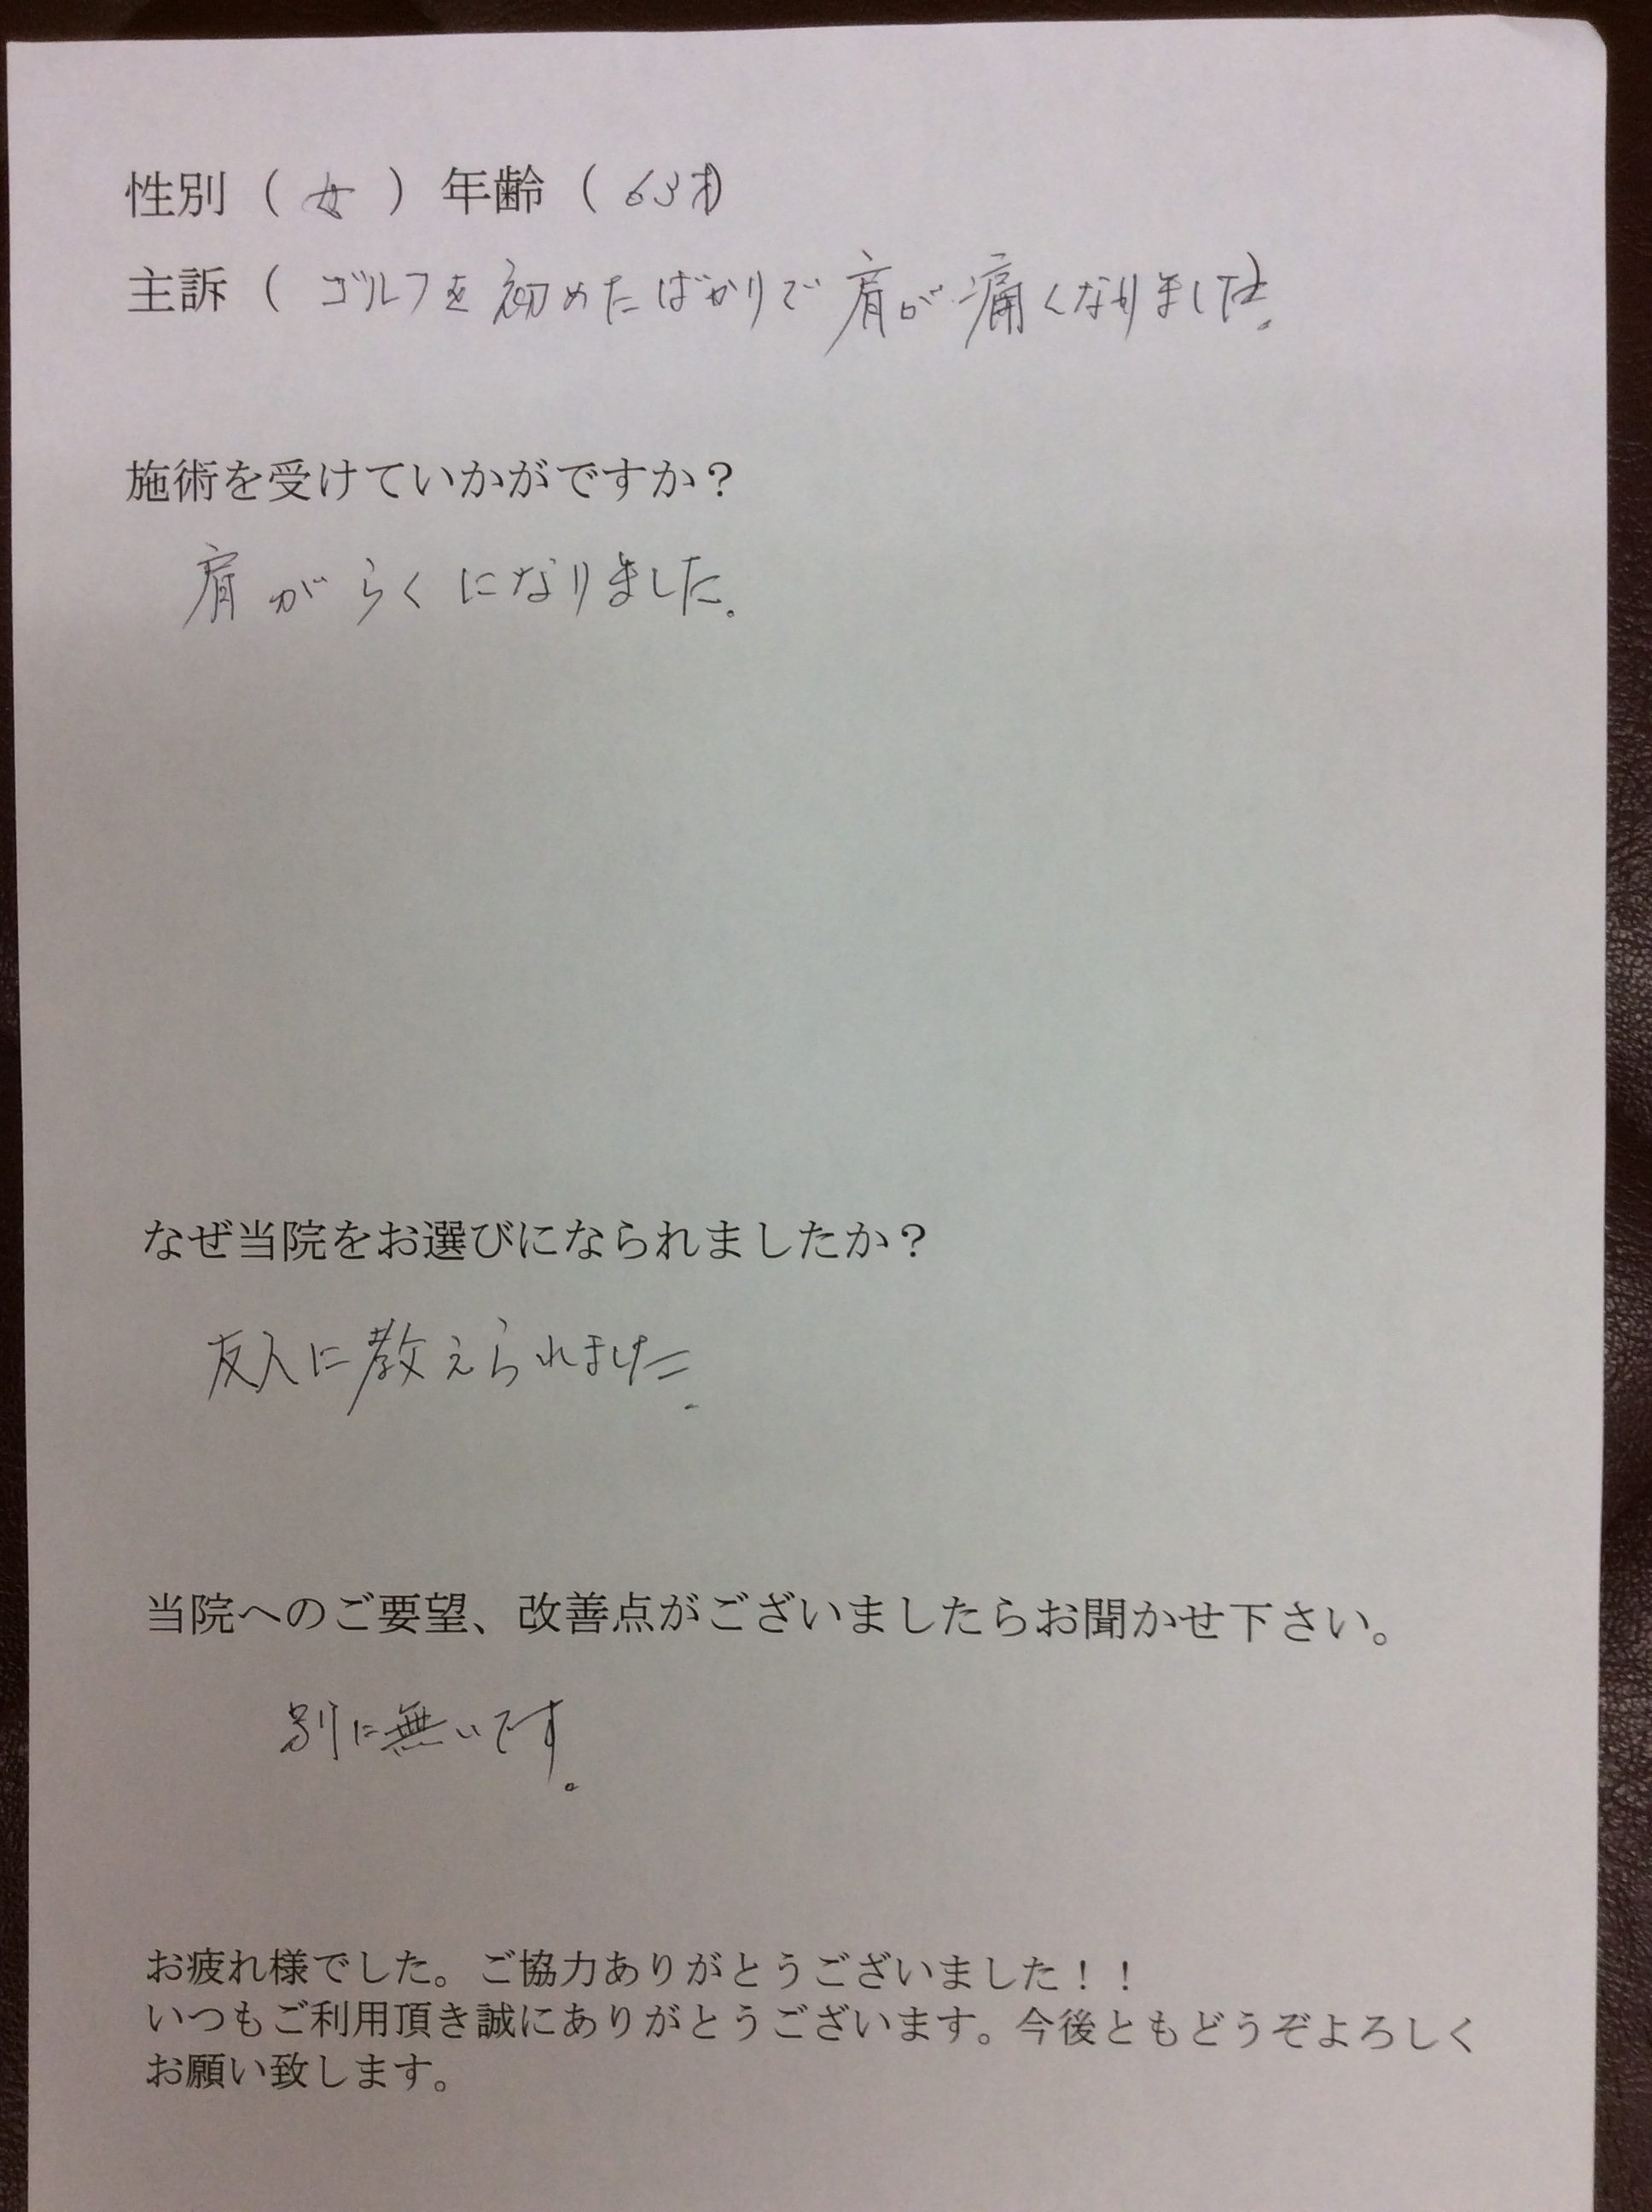 性別（女）年齢（63才）
主訴（ゴルフを初めたばかりで肩が痛くなりました。
施術を受けていかがですか？
肩がらくになりました。
なぜ当院をお選びになられましたか？
友人に教えられました。
当院へのご要望、改善点がございましたらお聞かせ下さい。
別に無いです。
お疲れ様でした。ご協力ありがとうございました！！
いつもご利用頂き誠にありがとうございます。今後ともどうぞよろしく
お願い致します。